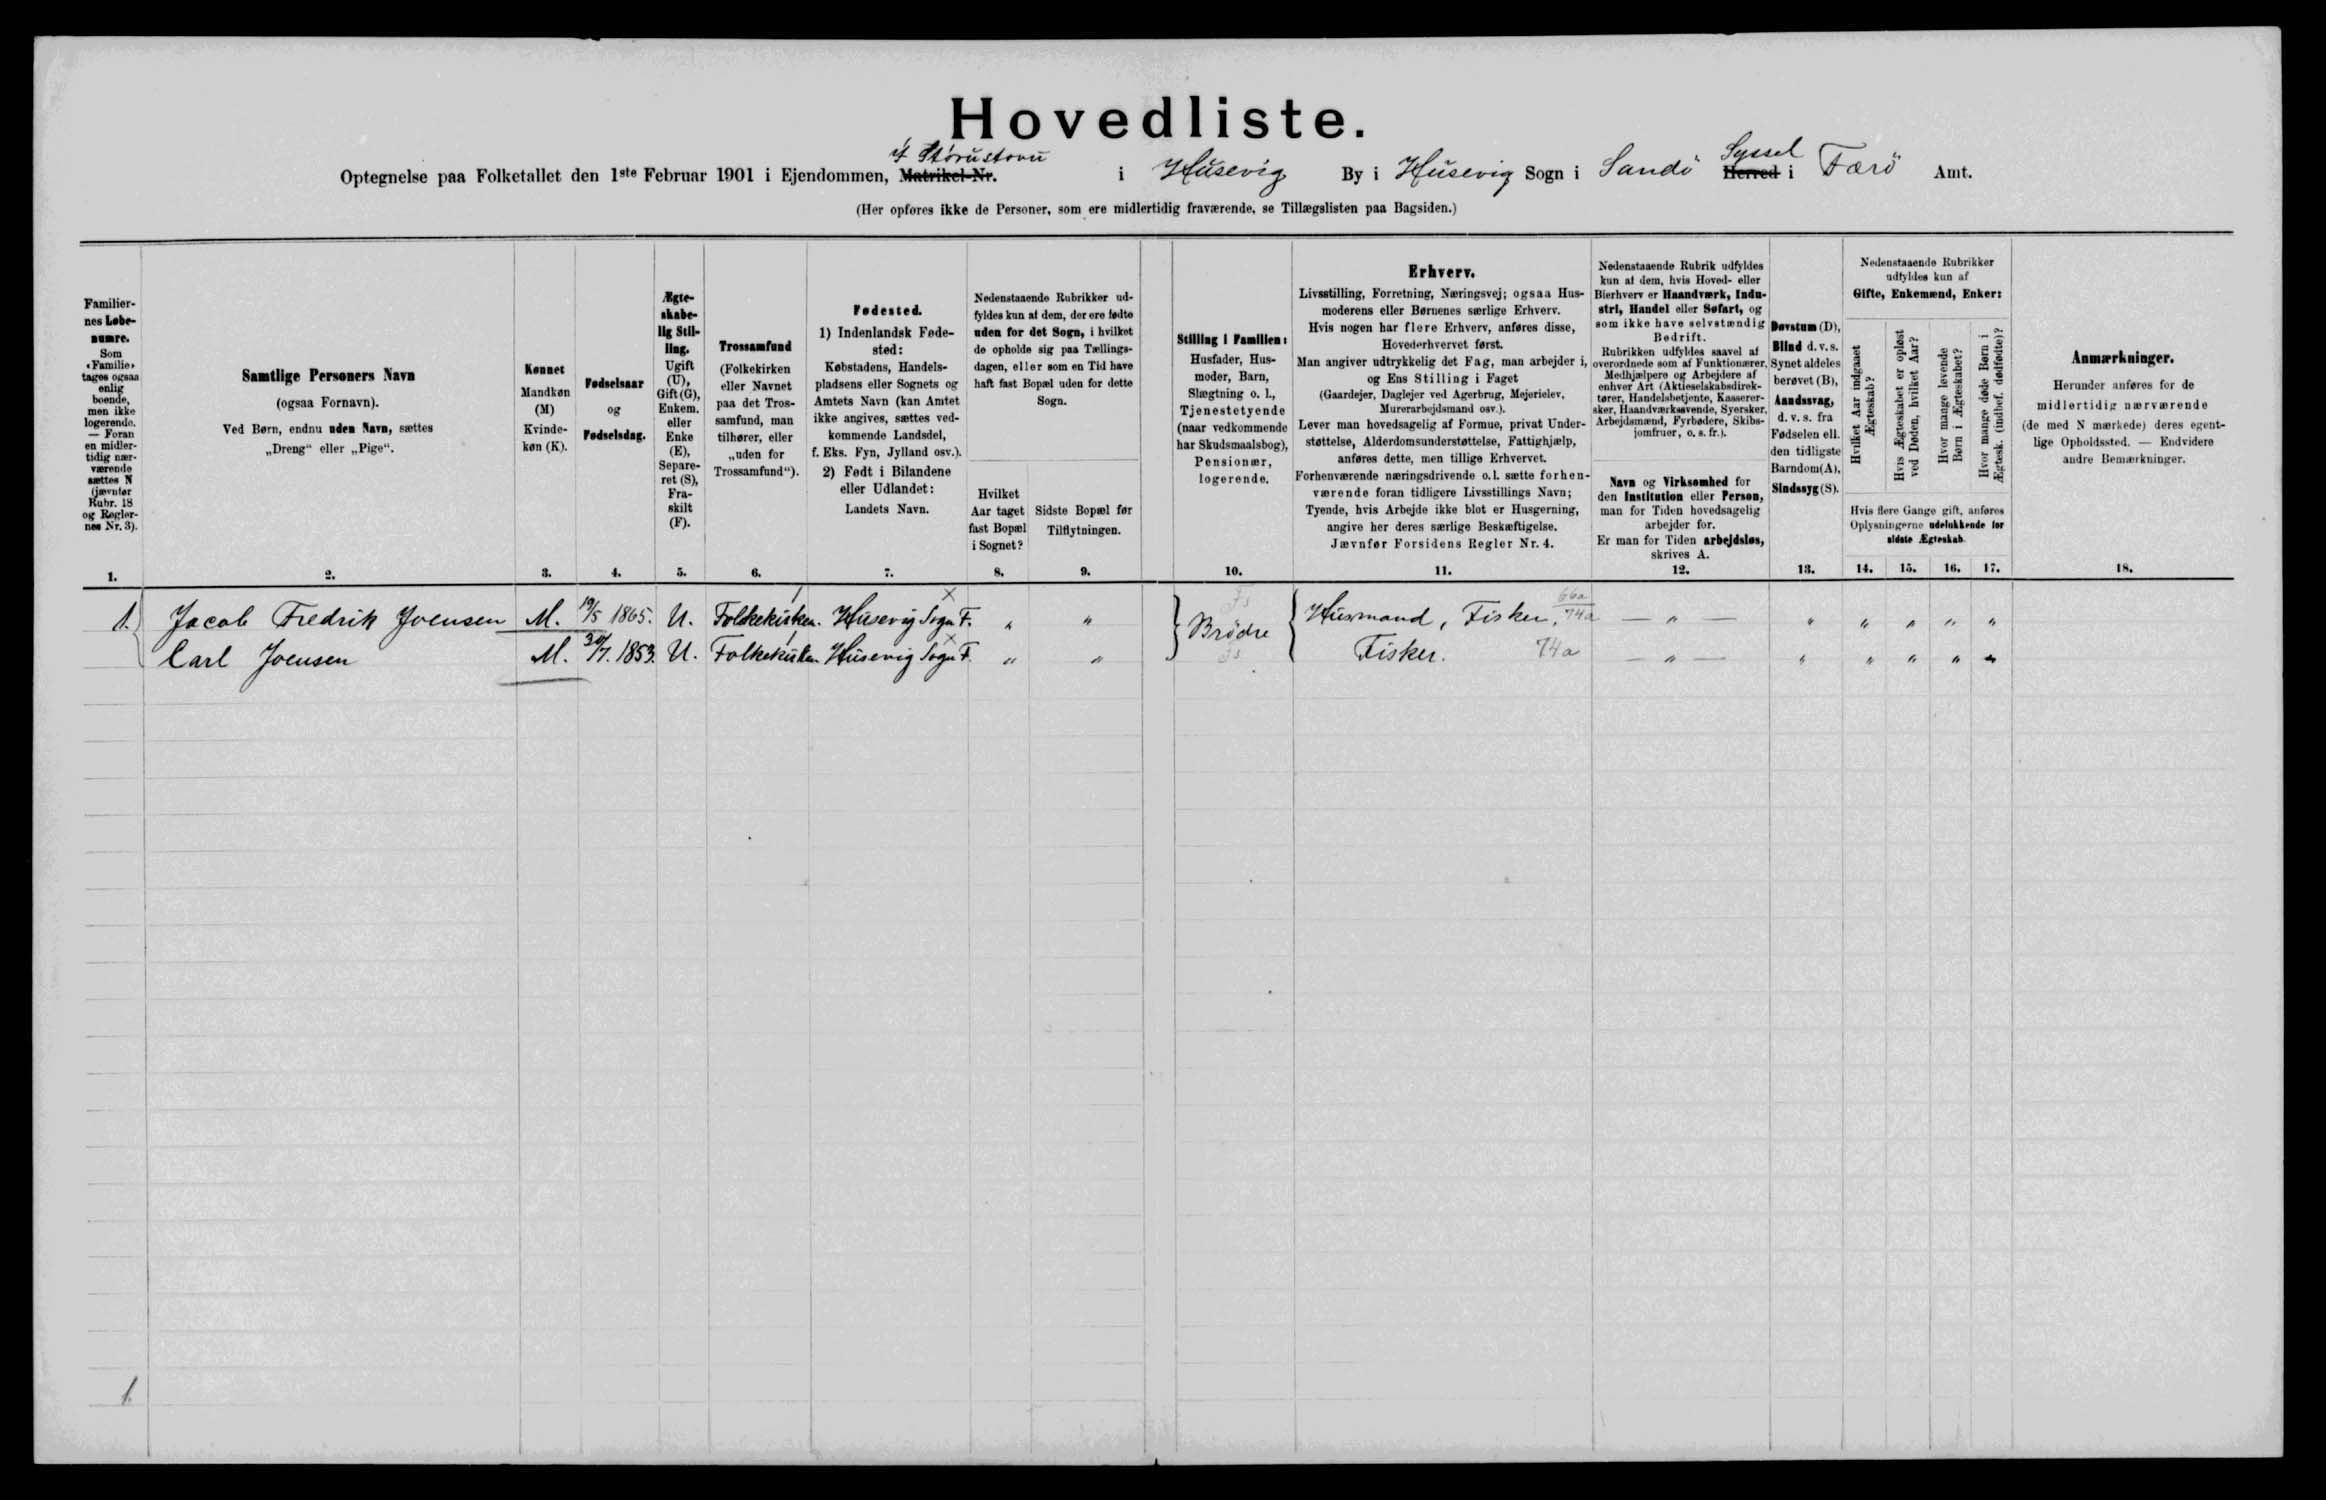 Hovedliste.
Optegnelse paa Folketallet den 1ste Februar 1901 i Ejendommen, Matrikel-Nr. Í Stórustovu i Húsevig By i Húsevig Sogn i Sandö Herred Syssel i Færö Amt.
(Her opføres ikke de Personer, som ere midlertidig fraværende, se Tillægslisten paa Bagsiden.)
Familiernes Løbenumre.
Som «Familie» tages ogsaa enlig boende, men ikke logerende. — Foran en midlertidig nærværende sættes N (jævnfør Rubr. 18 og Reglernes Nr. 3).
Samtlige Personers Navn
(ogsaa Fornavn).
Ved Børn, endnu uden Navn, sættes
„Dreng“ eller „Pige“.
Kønnet
Mandkøn (M)
Kvindekøn (K).
Fødselsaar
og
Fødselsdag.
Ægteskabelig Stilling.
Ugift (U), Gift (G), Enkem. eller Enke (E), Separeret (S), Fraskilt (F).
Trossamfund
(Folkekirken eller Navnet paa det Trossamfund, man tilhører, eller „uden for Trossamfund“).
Fødested.
1) Indenlandsk Fødested:
Købstadens, Handelspladsens eller Sognets og Amtets Navn (kan Amtet ikke angives, sættes vedkommende Landsdel, f. Eks. Fyn, Jylland osv.).
2) Født i Bilandene eller Udlandet:
Landets Navn.
Nedenstaaende Rubrikker udfyldes kun af dem, der ere fødte uden for det Sogn, i hvilket de opholde sig paa Tællingsdagen, eller som en Tid have haft fast Bopæl uden for dette Sogn.
Hvilket Aar taget fast Bopæl i Sognet?
Sidste Bopæl før Tilflytningen.
Stilling i Familien:
Husfader, Husmoder, Barn, Slægtning o. l., Tjenestetyende (naar vedkommende har Skudsmaalsbog), Pensionær, logerende.
Erhverv.
Livsstilling, Forretning, Næringsvej; ogsaa Husmoderens eller Børnenes særlige Erhverv.
Hvis nogen har flere Erhverv, anføres disse, Hovederhvervet først.
Man angiver udtrykkelig det Fag, man arbejder i, og Ens Stilling i Faget
(Gaardejer, Daglejer ved Agerbrug, Mejerielev, Murerarbejdsmand osv.).
Lever man hovedsagelig af Formue, privat Understøttelse, Alderdomsunderstøttelse, Fattighjælp, anføres dette, men tillige Erhvervet.
Forhenværende næringsdrivende o. l. sætte forhenværende foran tidligere Livsstillings Navn; Tyende, hvis Arbejde ikke blot er Husgerning, angive her deres særlige Beskæftigelse.
Jævnfør Forsidens Regler Nr. 4.
Nedenstaaende Rubrik udfyldes kun af dem, hvis Hoved- eller Bierhverv er Haandværk, Industri, Handel eller Søfart, og som ikke have selvstændig Bedrift.
Rubrikken udfyldes saavel af overordnede som af Funktionærer, Medhjælpere og Arbejdere af enhver Art (Aktieselskabsdirektører, Handelsbetjente, Kasserersker, Haandværkssvende, Syersker, Arbejdsmænd, Fyrbødere, Skibsjomfruer, o. s. fr.).
Navn og Virksomhed for den Institution eller Person, man for Tiden hovedsagelig arbejder for.
Er man for Tiden arbejdsløs, skrives A.
Døvstum (D), Blind d. v. s. Synet aldeles berøvet (B), Aandssvag, d. v. s. fra Fødselen ell. den tidligste Barndom (A), Sindssyg (S).
Nedenstaaende Rubrikker udfyldes kun af
Gifte, Enkemænd, Enker:
Hvilket Aar indgaaet Ægteskab?
Hvis Ægteskabet er opløst ved Døden, hvilket Aar?
Hvor mange levende Børn i Ægteskabet?
Hvor mange døde Børn i Ægtesk. (indbef. dødfødte)?
Hvis flere Gange gift, anføres Oplysningerne udelukkende for sidste Ægteskab.
Anmærkninger.
Herunder anføres for de midlertidig nærværende (de med N mærkede) deres egentlige Opholdssted. — Endvidere andre Bemærkninger.
1. 2. 3. 4. 5. 6. 7. 8. 9. 10. 11. 12. 13. 14. 15. 16. 17. 18.
1. Jacob Fredrik Joensen M. 19/5 1865. U. Folkekirken. Húsevig Sogn F. " " Brödre Húsmand, Fisker. 66a 74a — " — " " " " "
Carl Joensen M. 30/7. 1853. U. Folkekirken. Húsevig Sogn F. " " Fisker. 74a — " — " " " " "
1.